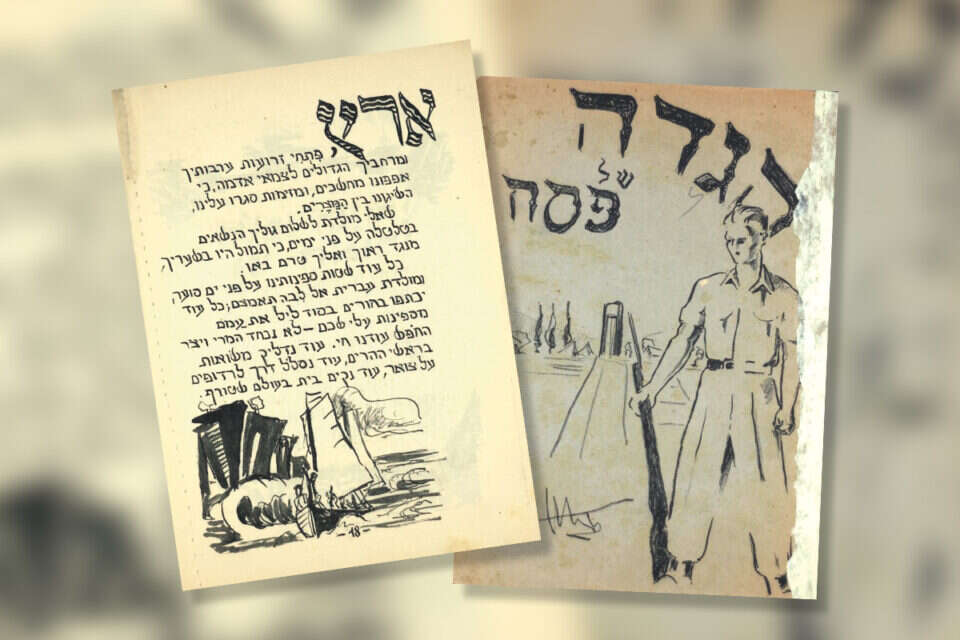 ארץ,
פתחי זרועות ערבותיך
ומרחביך הגדולים לצמאי אדמה, כי
אפפונו מחשכים, ומזימות סגרו עלינו,
השיגונו בין המצרים.
שאלי מולדת לשלום גוליך הנשאים
בטלטלה על פני ימים, כי תמול היו בשעריך,
מנגד ראוך ואליך טרם באו.
כל עוד שטות ספינותינו על פני ים סוער,
ומולדת עברית אל לבה תאמצם; כל עוד
יכתפו בחורים בסוד ליל את עמם
מספינות עלי שכם – לא נכחד המרי ויצר
החפש עודנו חי. עוד נדליק משואות
בראשי ההרים, עוד נסלל דרך לרדופים
על צואר, עוד נקים בית בעולם שטורף.
- 18 -
הגדה
של
פסח